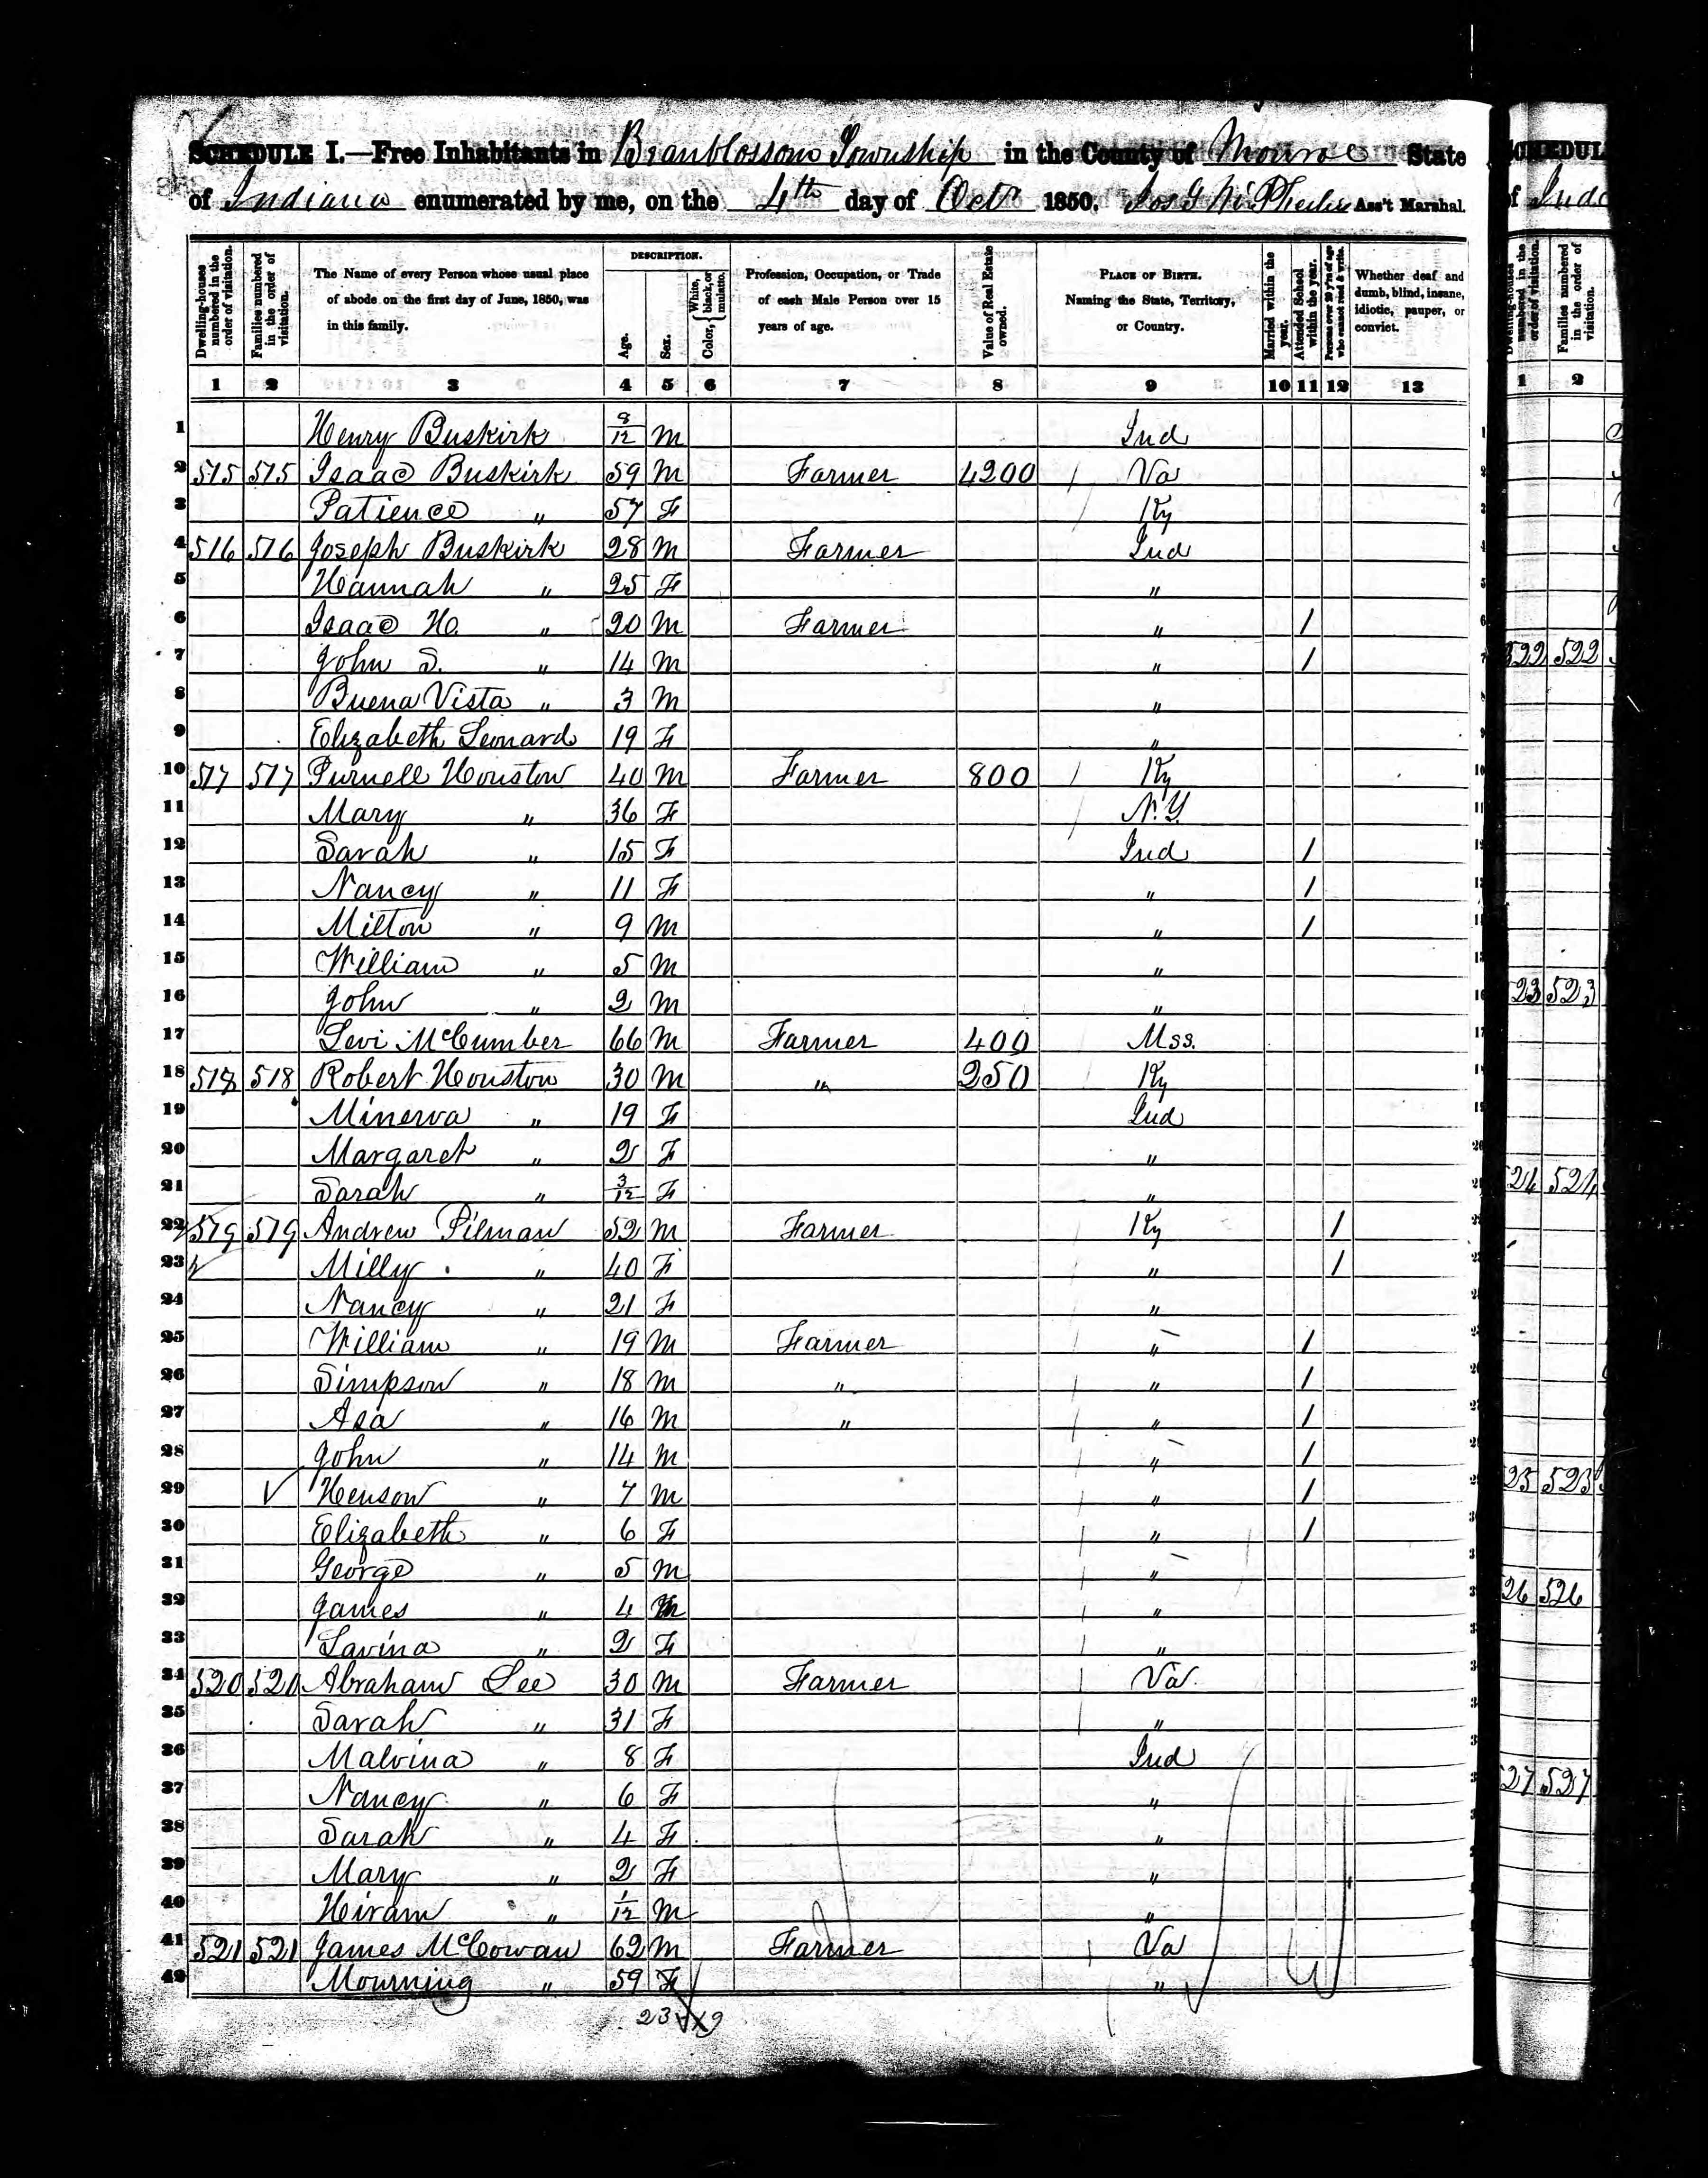 SCHEDULE I.—Free Inhabitants in Beanblossom Township in the County of Monroe State
of Indiana enumerated by me, on the 4th day of Oct 1850. Ass't Marshal.
Dwelling-houses numbered in the order of visitation.
Families numbered in the order of visitation.
The Name of every Person whose usual place of abode on the first day of June, 1850, was in this family.
DESCRIPTION.
Age.
Sex.
Color, { White, black, or mulatto.
Profession, Occupation, or Trade of each Male Person over 15 years of age.
Value of Real Estate owned.
PLACE OF BIRTH. Naming the State, Territory, or Country.
Married within the year.
Attended School within the year.
Persons over 20 y'rs of age who cannot read & write.
Whether deaf and dumb, blind, insane, idiotic, pauper, or convict.
1 2 3 4 5 6 7 8 9 10 11 12 13
1 Henry Buskirk 8/12 M Ind
2 515 515 Isaac Buskirk 59 M Farmer 4200 / Va
3 Patience " 57 F / Ky
4 516 516 Joseph Buskirk 28 M Farmer Ind
5 Hannah " 25 F "
6 Isaac H. " 20 M Farmer " /
7 John S. " 14 M " /
8 Buena Vista " 3 M "
9 Elizabeth Leonard 19 F "
10 517 517 Purnell Houston 40 M Farmer 800 / Ky
11 Mary " 36 F / N.Y.
12 Sarah " 15 F Ind /
13 Nancy " 11 F " /
14 Milton " 9 M " /
15 William " 5 M "
16 John " 2 M "
17 Levi McCumber 66 M Farmer 400 / Mss.
18 518 518 Robert Houston 30 M " 250 / Ky
19 Minerva " 19 F Ind
20 Margaret " 2 F "
21 Sarah " 3/12 F "
22 519 519 Andrew Pilman 52 M Farmer / Ky /
23 Milly " 40 F " /
24 Nancy " 21 F "
25 William " 19 M Farmer " /
26 Simpson " 18 M " " /
27 Asa " 16 M " " /
28 John " 14 M " /
29 Henson " 7 M " /
30 Elizabeth " 6 F " /
31 George " 5 M "
32 James " 4 M "
33 Lavina " 2 F "
34 520 520 Abraham Lee 30 M Farmer / Va.
35 Sarah " 31 F / "
36 Malvina " 8 F Ind
37 Nancy " 6 F "
38 Sarah " 4 F "
39 Mary " 2 F "
40 Hiram " 1/12 M "
41 521 521 James McCowan 62 M Farmer / Va
42 Mourning " 59 F "
23 19
SCHEDUL
of Indi
1 2
522 522
523 523
524 524
525 525
526 526
527 527